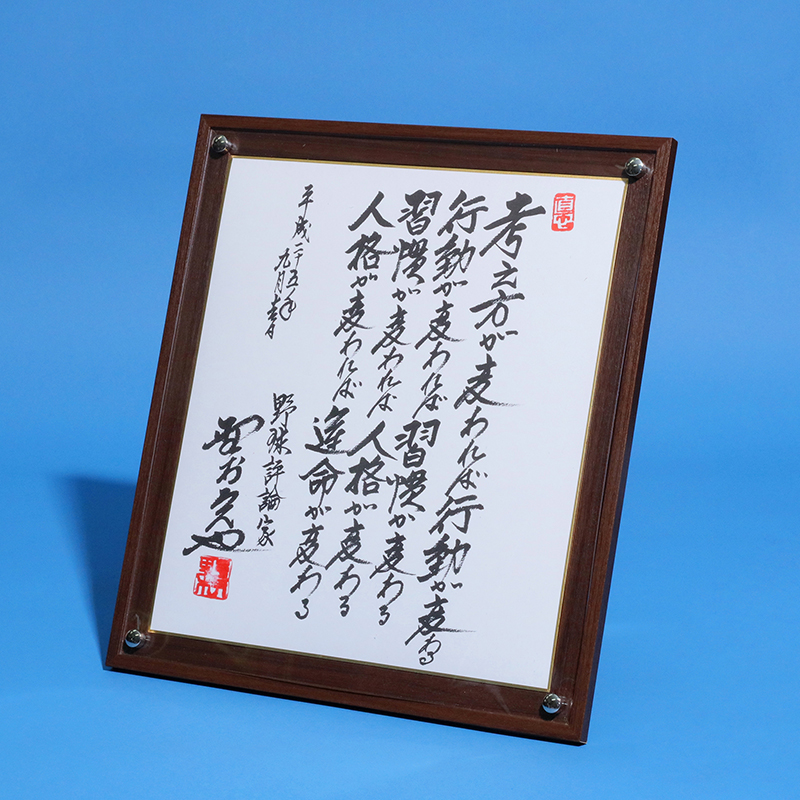 考え方が変われば行動が変る
行動が変われば習慣が変わる
習慣が変われば人格が変わる
人格が変われば運命が変わる
平成二十五年
九月吉日
野球評論家